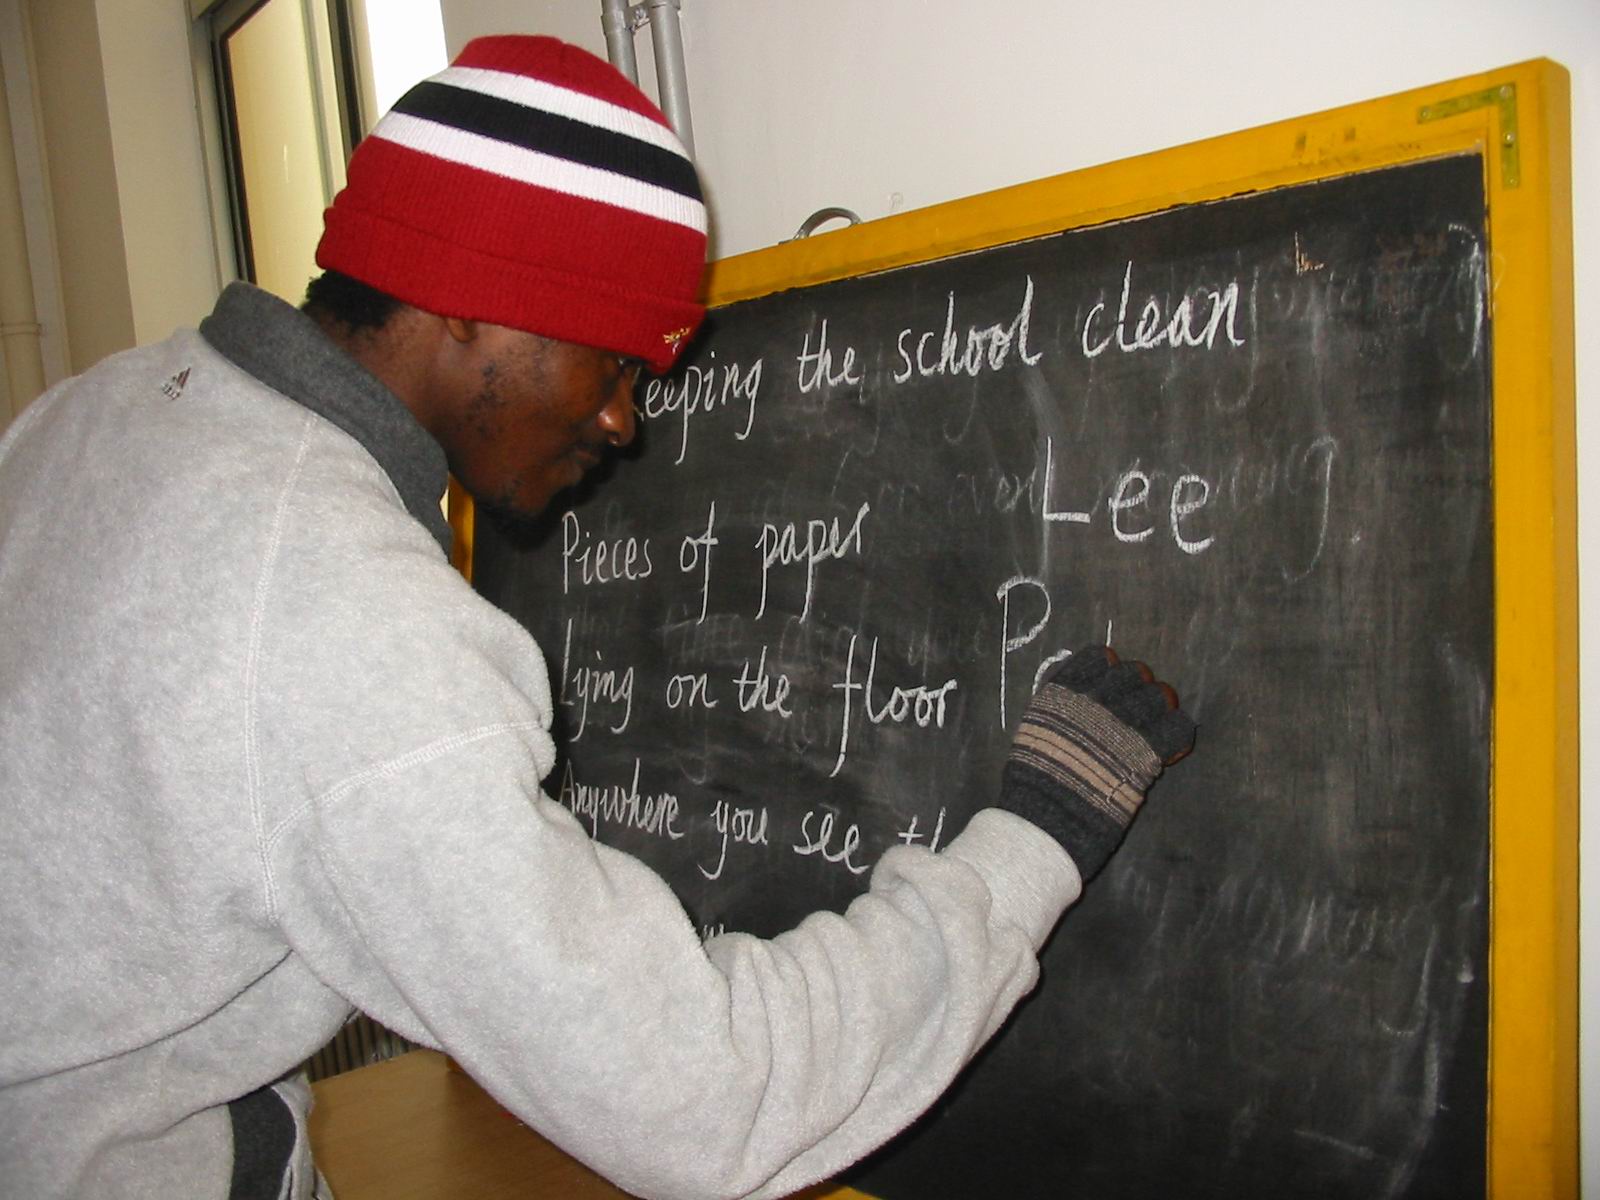 eeping the school clean
Lee
Pieces of paper
Lying on the floor
Anywhere you see